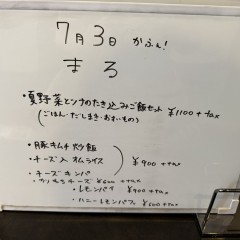 7月3日 かふぇ!
まろ
・夏野菜とツナのたき込みご飯セット ¥1100+tax
(ごはん・だしまき・おすいもの)
・豚キムチ炒飯
・チーズ入オムライス
・チーズキンパ
¥900+tax
チーズ ¥600+tax
・レモンパフェ ¥900+tax
・ハニーレモンパフェ ¥600+tax